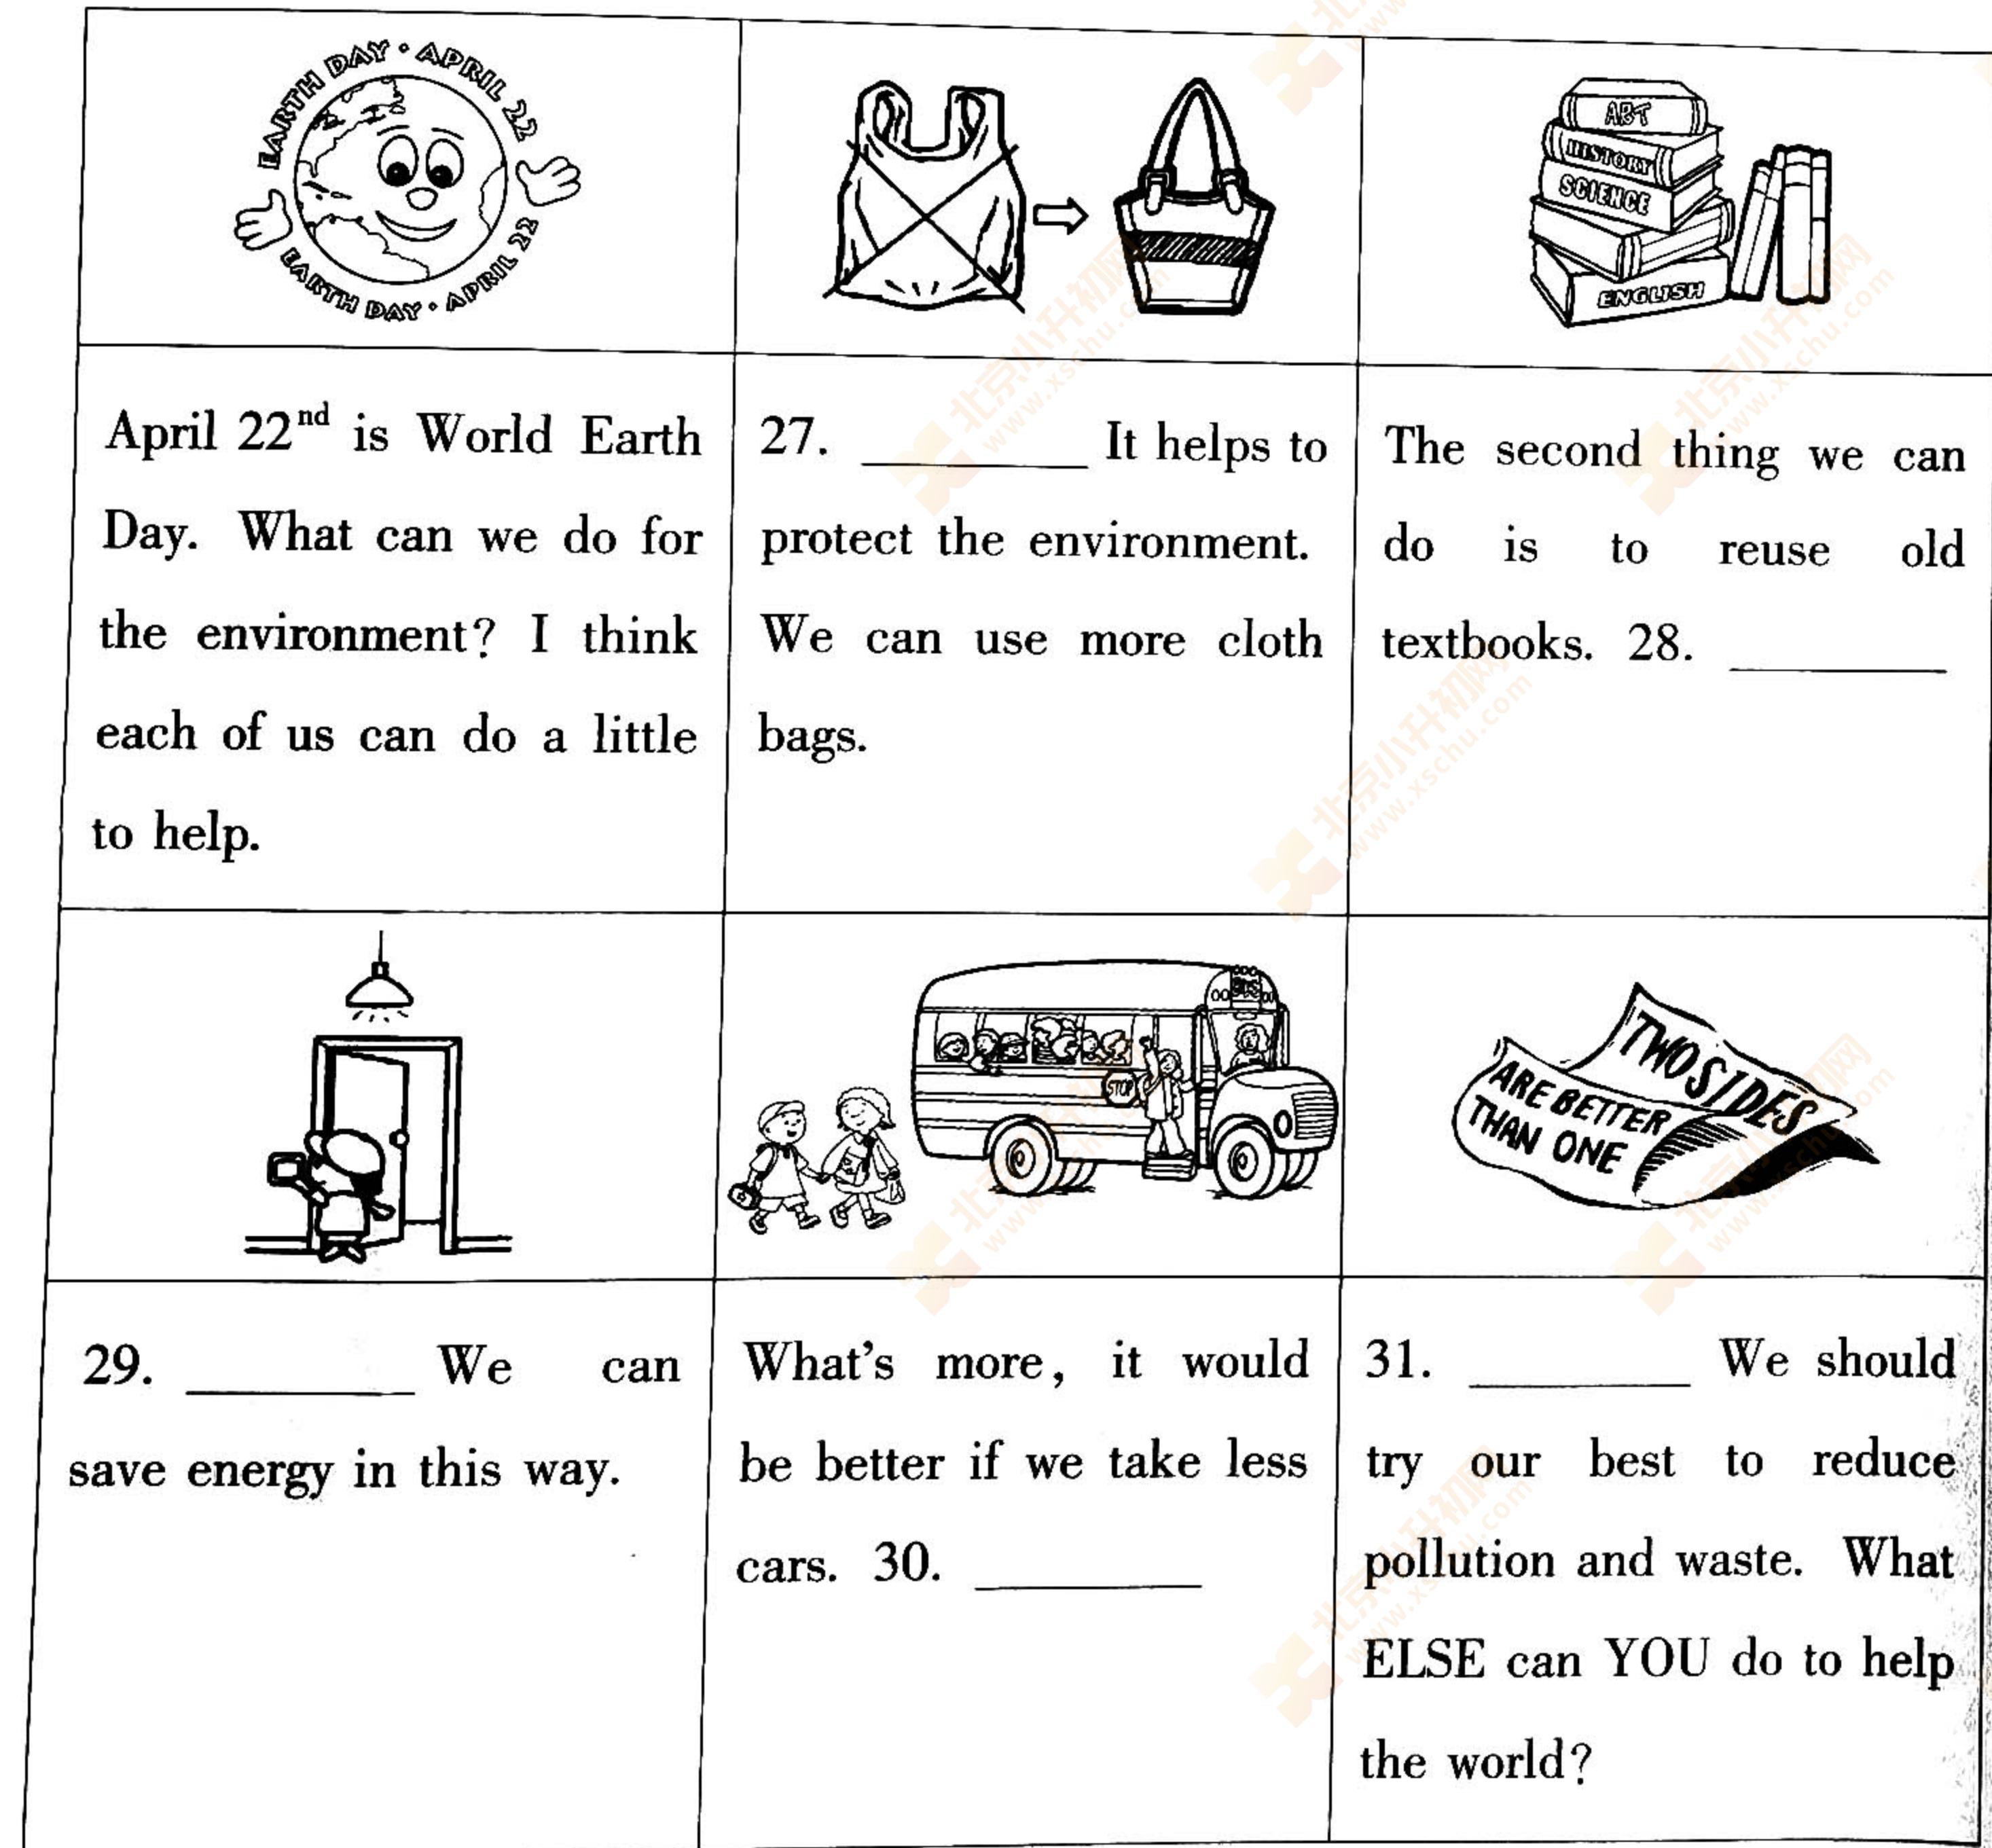 EARTH DAY · APRIL 22
EARTH DAY · APRIL 22
ART
HISTORY
SCIENCE
ENGLISH
April 22nd is World Earth
Day. What can we do for
the environment? I think
each of us can do a little
to help.
27. ________ It helps to
protect the environment.
We can use more cloth
bags.
The second thing we can
do is to reuse old
textbooks. 28. ________
BUS
STOP
TWO SIDES
ARE BETTER
THAN ONE
29. ________ We can
save energy in this way.
What's more, it would
be better if we take less
cars. 30. ________
31. ________ We should
try our best to reduce
pollution and waste. What
ELSE can YOU do to help
the world?
北京小升初网
www.xschu.com